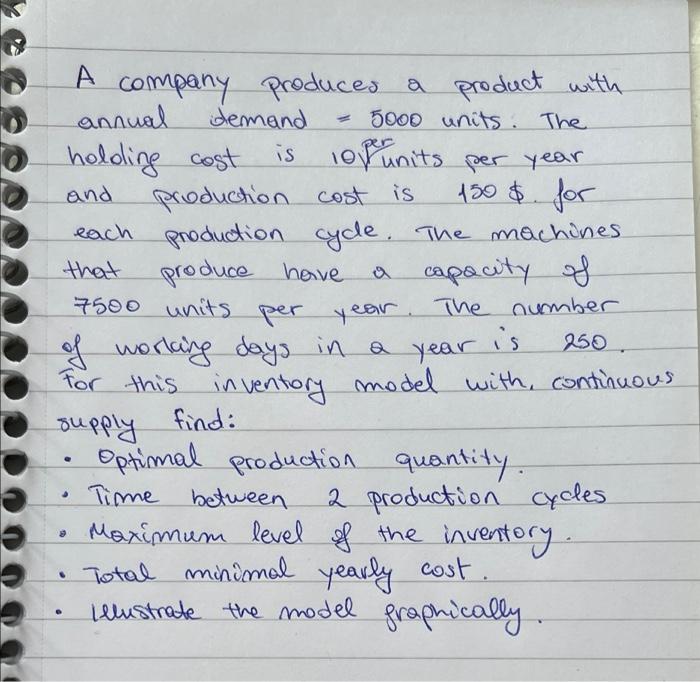 A company produces a product with
annual demand = 5000 units. The
holding cost is 10 per units per year
and production cost is 150 $. for
each production cycle. The machines
that produce have a capacity of
7500 units per year. The number
of working days in a year is 250.
For this inventory model with, continuous
supply find:
• Optimal production quantity.
• Time between 2 production cycles
• Maximum level of the inventory.
• Total minimal yearly cost.
• Illustrate the model graphically.